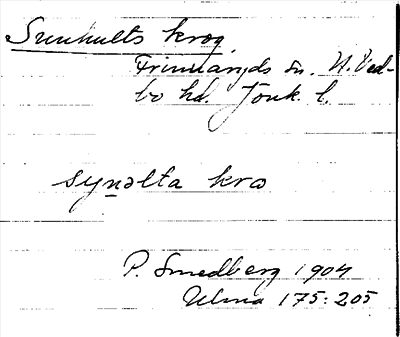 Sunhults krog
Frinnaryds sn. N. Ved-
bo hd. Jönk. l.
synəlta kro
P. Smedberg 1904
Ulma 175:205